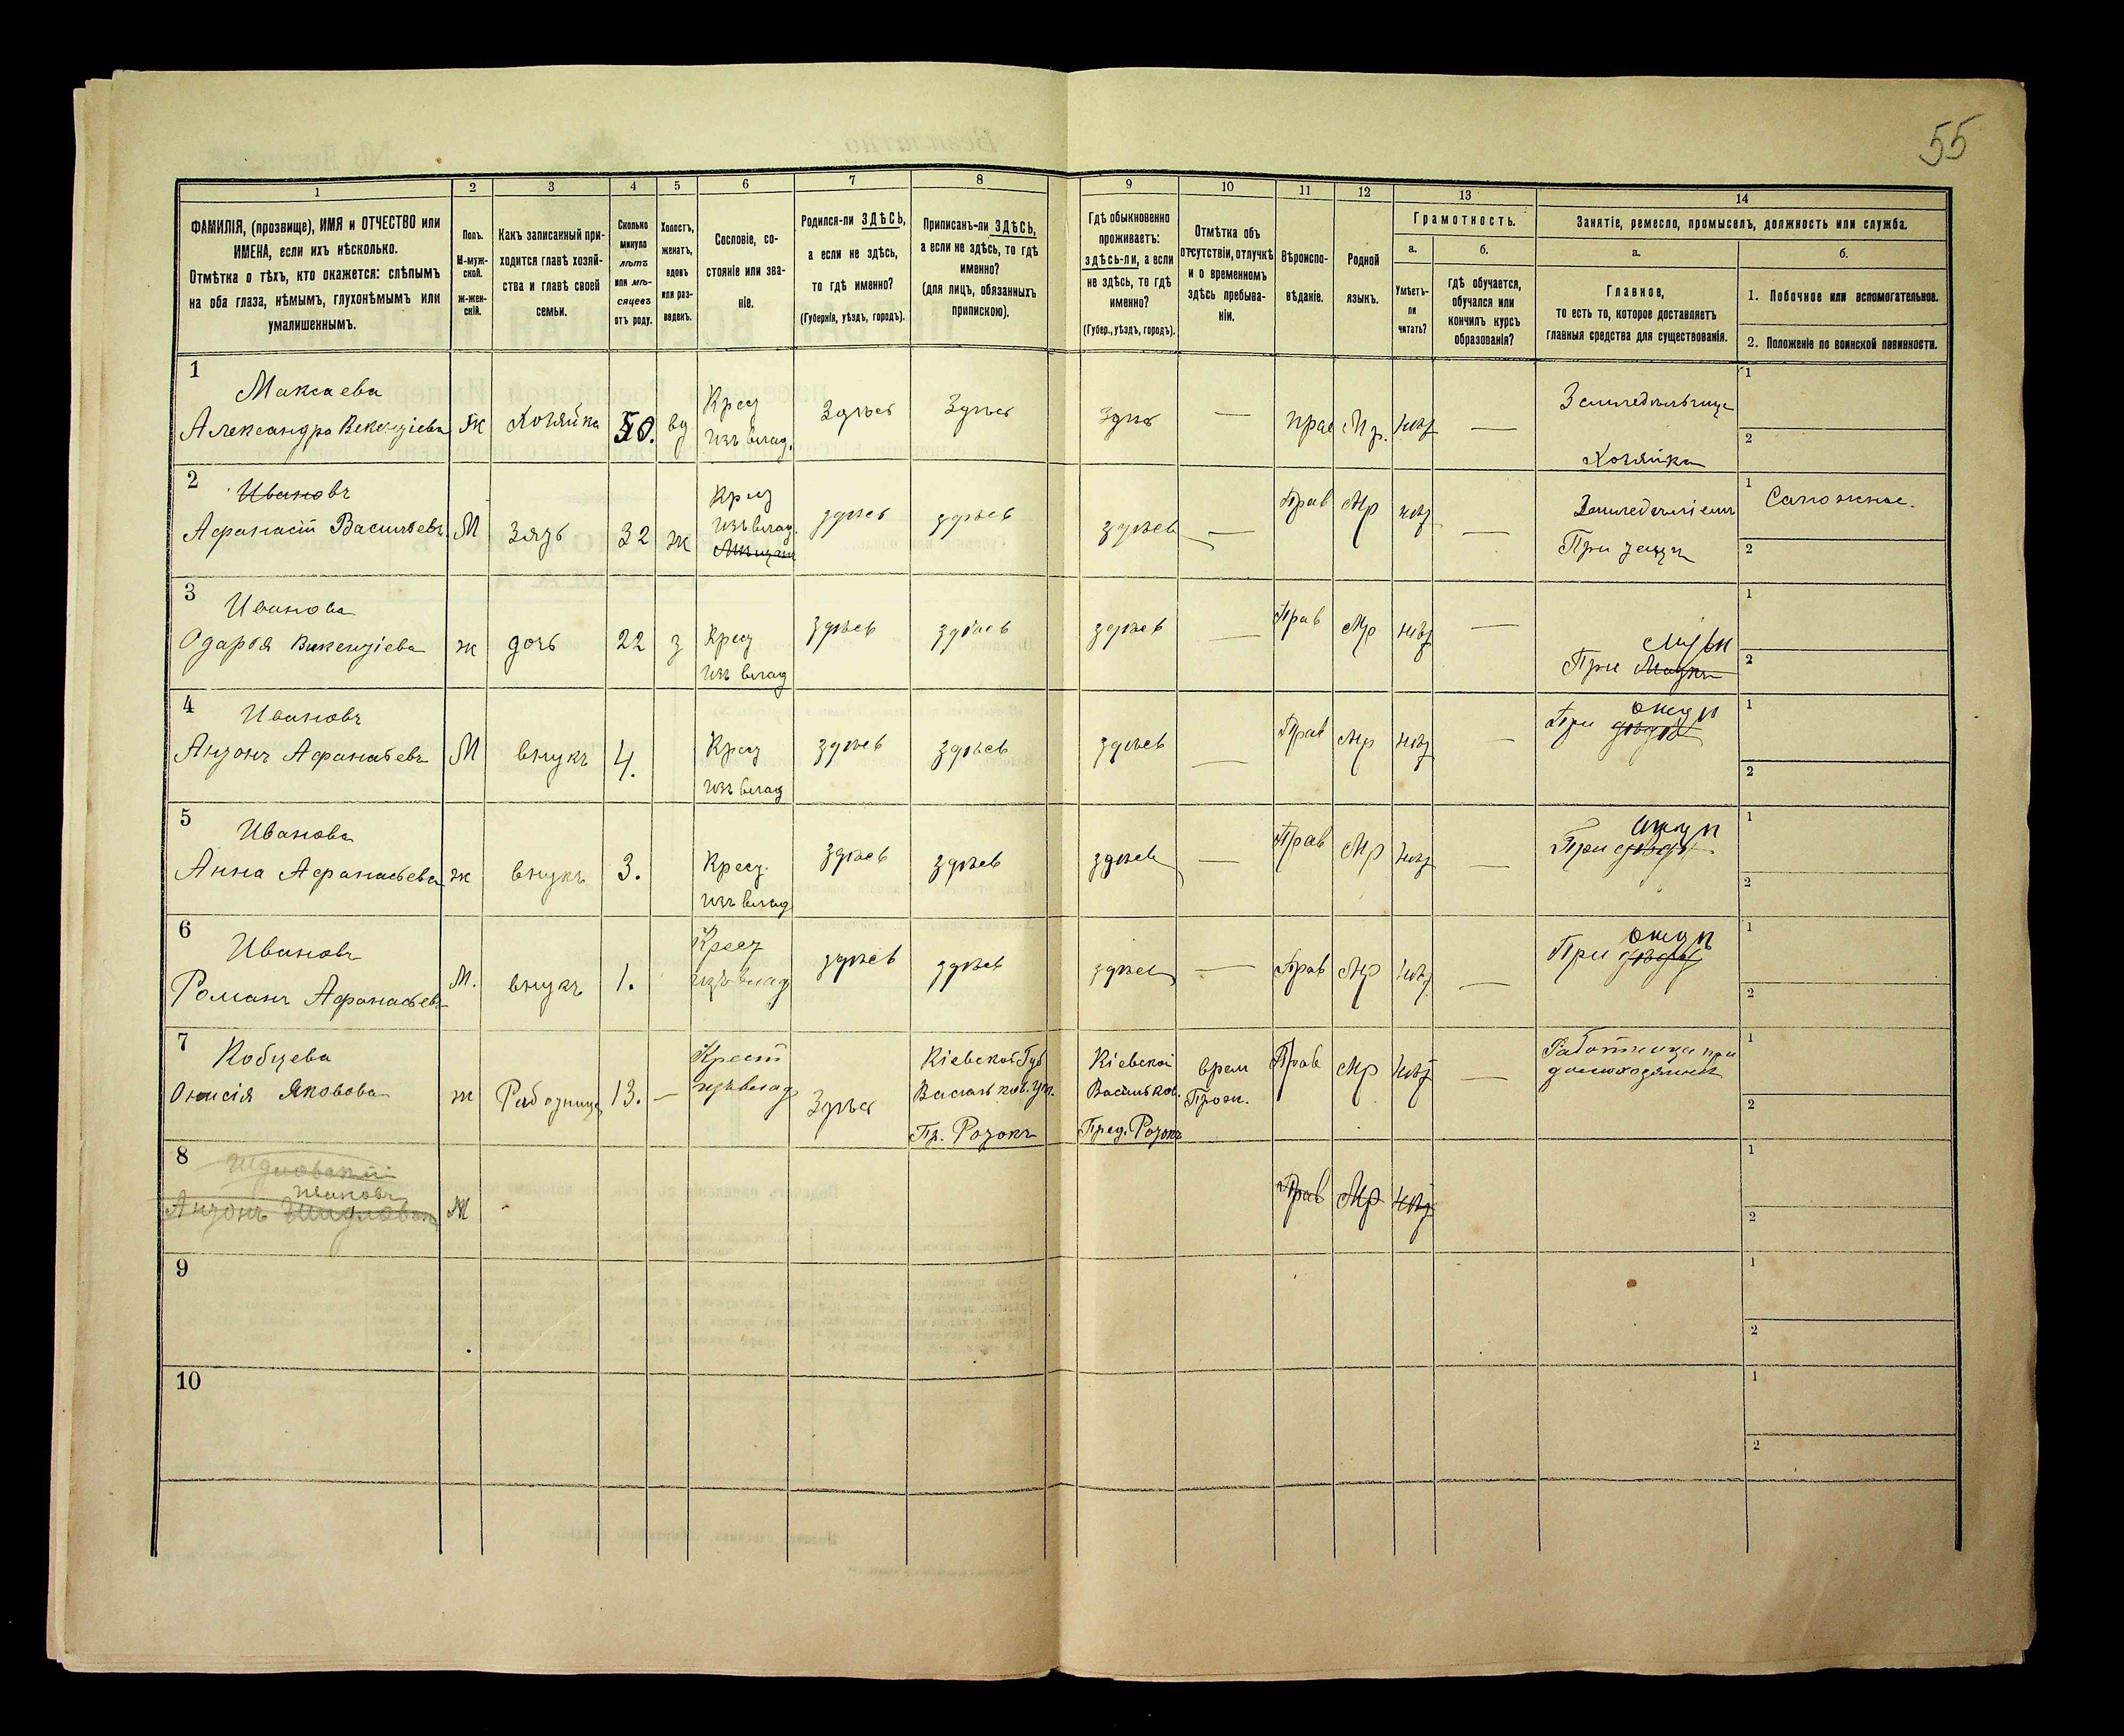 55
1
2
3
4
5
6
7
8
9
10
11
12
13
14
ФАМИЛІЯ, (прозвище), ИМЯ и ОТЧЕСТВО или
ИМЕНА, если ихъ нѣсколько.
Отмѣтка о тѣхъ, кто окажется: слѣпымъ
на оба глаза, нѣмымъ, глухонѣмымъ или
умалишеннымъ.
Полъ.
М-муж-
ской.
ж-жен-
скій.
Какъ записанный при-
ходится главѣ хозяй-
ства и главѣ своей
семьи.
Сколько
минуло
лѣтъ
или мѣ-
сяцевъ
отъ роду.
Холостъ,
женатъ,
вдовъ
или раз-
веденъ.
Сословіе, со-
стояніе или зва-
ніе.
Родился-ли ЗДѢСЬ,
а если не здѣсь,
то гдѣ именно?
(Губернія, уѣздъ, городъ).
Приписанъ-ли ЗДѢСЬ,
а если не здѣсь, то гдѣ
именно?
(для лицъ, обязанныхъ
припискою).
Гдѣ обыкновенно
проживаетъ:
здѣсь-ли, а если
не здѣсь, то гдѣ
именно?
(Губер., уѣздъ, городъ).
Отмѣтка объ
отсутствіи, отлучкѣ
и о временномъ
здѣсь пребыва-
ніи.
Вѣроиспо-
вѣданіе.
Родной
языкъ.
Грамотность.
а.
Умѣетъ-
ли
читать?
б.
Гдѣ обучается,
обучался или
кончилъ курсъ
образованія?
Занятіе, ремесло, промыселъ, должность или служба.
а.
Главное,
то есть то, которое доставляетъ
главныя средства для существованія.
б.
1. Побочное или вспомогательное.
2. Положеніе по воинской повинности.
1
Максаева
Александра Викентіева
Ж
Хозяйка
50.
вд
Крест
изъ влад.
Здѣсь
Здѣсь
Здѣсь
—
Прав
Мр.
нѣт
—
Хозяйка
1
2
2
Ивановъ
Афанасій Васильевъ
М
Зять
32
ж
Крест
изъ влад.
здѣсь
здѣсь
здѣсь
—
Прав
Мр
нѣт
—
При
1 Сапожное.
2
3
Иванова
Одарья Викентіева
ж
дочь
22
з
Крест
изъ влад
здѣсь
здѣсь
здѣсь
—
Прав
Мр
нѣт
—
При
1
2
4
Ивановъ
Антонъ Афанасьевъ
М
внукъ
4.
Крест
изъ влад
здѣсь
здѣсь
здѣсь
—
Прав
Мр
нѣт
—
При отцѣ
1
2
5
Иванова
Анна Афанасьева
ж
внукъ
3.
Крест.
изъ влад
здѣсь
здѣсь
здѣсь
—
Прав
Мр
нѣт
—
При отцѣ
1
2
6
Ивановъ
Романъ Афанасьевъ
М.
внукъ
1.
Крест
изъ влад
здѣсь
здѣсь
здѣсь
—
Прав
Мр
нѣт
—
При отцѣ
1
2
7
Кобцева
Онисія Яковова
ж
Работница
13.
—
Крест
изъ влад
Здѣсь
Кіевской Губ
Васильков. уѣз.
Пр. Ротокъ
Кіевской
Васильков.
Пред. Ротокъ
врем
Прож.
Прав
Мр
нѣт
—
Работница при
1
2
8
Ивановъ
Антонъ
М
Прав
Мр
нѣт
1
2
9
1
2
10
1
2